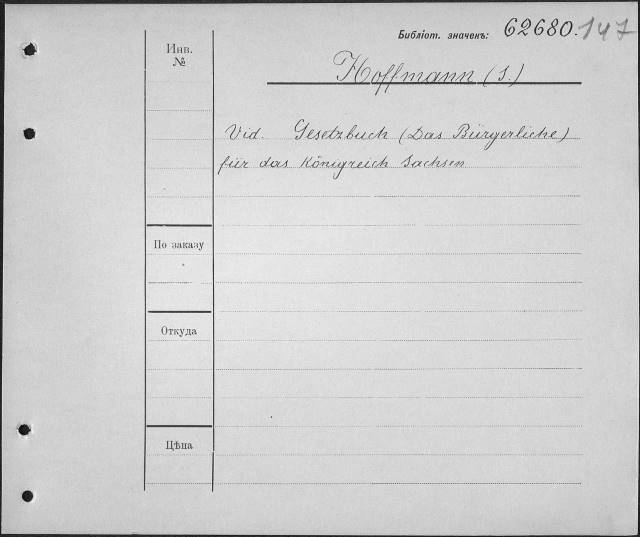 Библіот. значекъ: 62680. 147
Инв. №
Hoffmann (S.)
Vid. Gesetzbuch (Das Bürgerliche)
für das Königreich Sachsen
По заказу
Откуда
Цѣна